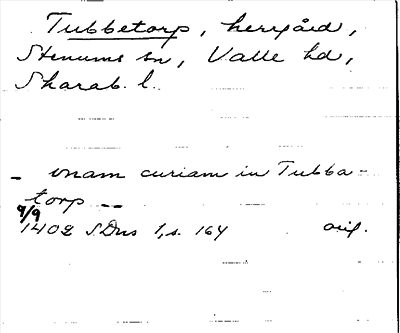 Tubbetorp, herrgård,
Stenums sn, Valle hd,
Skarab. l.
– vnam curiam in Tubba-
torp --
9/9
1402 SDns 1, s. 164 orig.